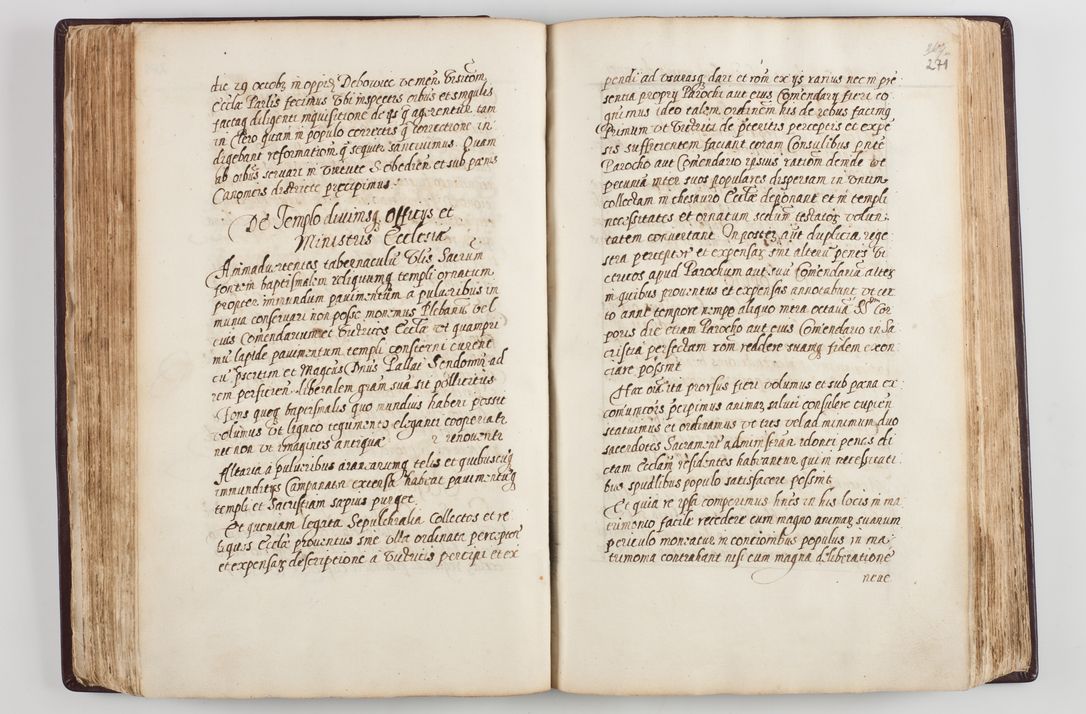 die 29 octobz in oppid Debowiec vemen visitom
Ecclæ Parlis fecimus Vbi inspectis oibus et singulis
factaq diligenti inquisitione de ijs q agerentur tam
in Clero quam in populo correctis q correctione in:
digebant reformatiom q sequitr sanciuimus. Quam
ab oibus seruari in virtute S obedien et sub pœnis
Canonicis districte præcipimus.
De Templo diuinisq Officijs et
Ministris Ecclesiæ
Animaduertentes tabernaculu Vblis Sacrum
fontem baptismalem reliquumq templi ornatum
propter immundum pauimentum a pulueribus in
munia conseruari non posse monemus Plebanu vel
eius Comendarium et Vitricos Ecclæ vt quampri
mu lapide pauimentum templi consterni curent
cu præsertim et Magcus Dnus Pallat Sendomir ad
rem perficien liberalem gram sua sit pollicitus
Fons quoq baptismalis quo mundius haberi possit
volumus vt ligneo tegumento eleganti cooperiatr
nec non vt imagines antiquæ renouentr
Altaria a pulueribus aranearumq telis et quibuscuq
immunditijs Campanatr extensa habeat pauimentuq
templi et Sacristiam sæpius purget
Et quoniam legata Sepulchralia Collectos et re
liquos Ecclæ prouentus sine vlla ordinata perceptor
et expensar descriptione a Vitricis percipi et ex
267
271
pendi ad vsurasq dari et rom ex ijs rarius nec in præ
sentia proprij Parochi aut eius Comendarij fieri co
gnimus ideo talem ordinem his de rebus facimq
Primum vt Vitrici de præteritis perceptis et expe
sis sufficientem faciant coram Consulibus pnte
Parocho aut Comendario ipsius ratiom deinde vt
pecunia inter suos populares dispersam in vnum
collectam in thesauro Ecclæ deponant et in templi
necessitates et ornatum scdum testator volun:
tatem conuertant. In poster aut duplicia rege
stra perceptor et expensar sint alteru penes Vi
tricos apud Parochum aut suu Comendariu alter
in quibus prouentus et expensas annotabunt vt cer
to anni tempore nempe aliquo intra octaua SSmi Cor
poris die etiam Parocho aut eius Comendario in Sa
cristia perfectam rom reddere suamq fidem exon
rare possint
Hæc oia ita prorsus fieri volumus et sub pœna ex
comunicois præcipimus animar saluti consulere cupien
statuimus et ordinamus vt tres vel ad minimum duo
sacerdotes Sacrament administran idonei penes di
ctam Ecclam residentes habeantur qui in necessitati
bus spualibus populo satisfacere possint
Et quia re ipsa comperimus hnes in his locis in ma
trimonio facile recedere cum magno animar suarum
periculo moneatur in concionibus populus in ma:
trimonia contrahant nisi cum magna deliberatione
neue